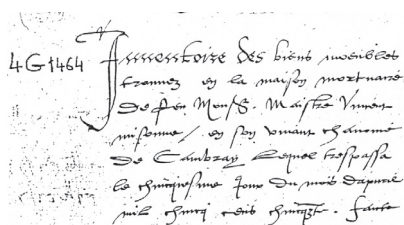 4G1464
Inventoire des biens moeibles
trouvez en la maison mortuaire
de feu Mons.r Maistre Vincent
misonne / en son vivant chanoine
de Cambray lequel trespassa
le chincquiesme jour du mois dapvril
mil chincq cens chincqte. faicte